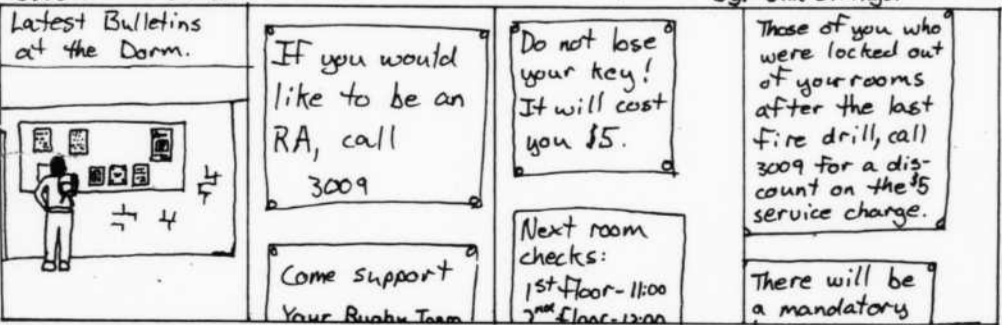 Latest Bulletins
at the Dorm.
If you would
like to be an
RA, call
3009
Come support
Your Rugby Team
Do not lose
your key!
It will cost
you $5.
Next room
checks:
1st floor-11:00
2nd floor-12:00
Those of you who
were locked out
of your rooms
after the last
fire drill, call
3009 for a dis-
count on the $5
service charge.
There will be
a mandatory